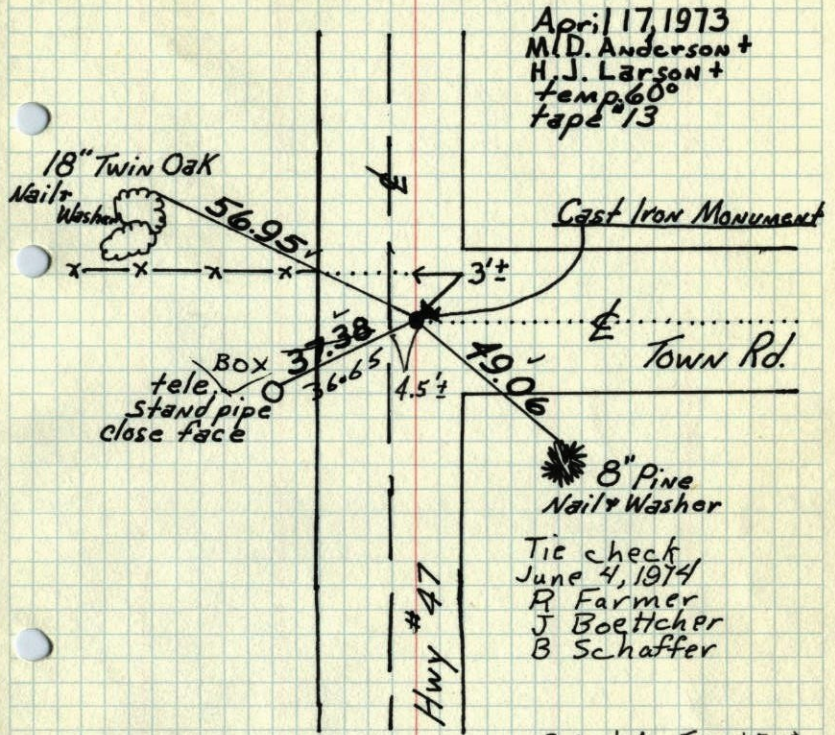 April 17, 1973
M.D. Anderson +
H.J. Larson +
temp. 60°
tape #13
18" Twin Oak
Nail &
Washer
56.95 ✓
℄
Cast Iron Monument
3'±
℄
Town Rd.
BOX
tele.
Stand pipe
close face
37.38 ✓
36.65
4.5'±
49.06 ✓
8" Pine
Nail & Washer
Hwy #47
Tie check
June 4, 1974
R Farmer
J Boettcher
B Schaffer